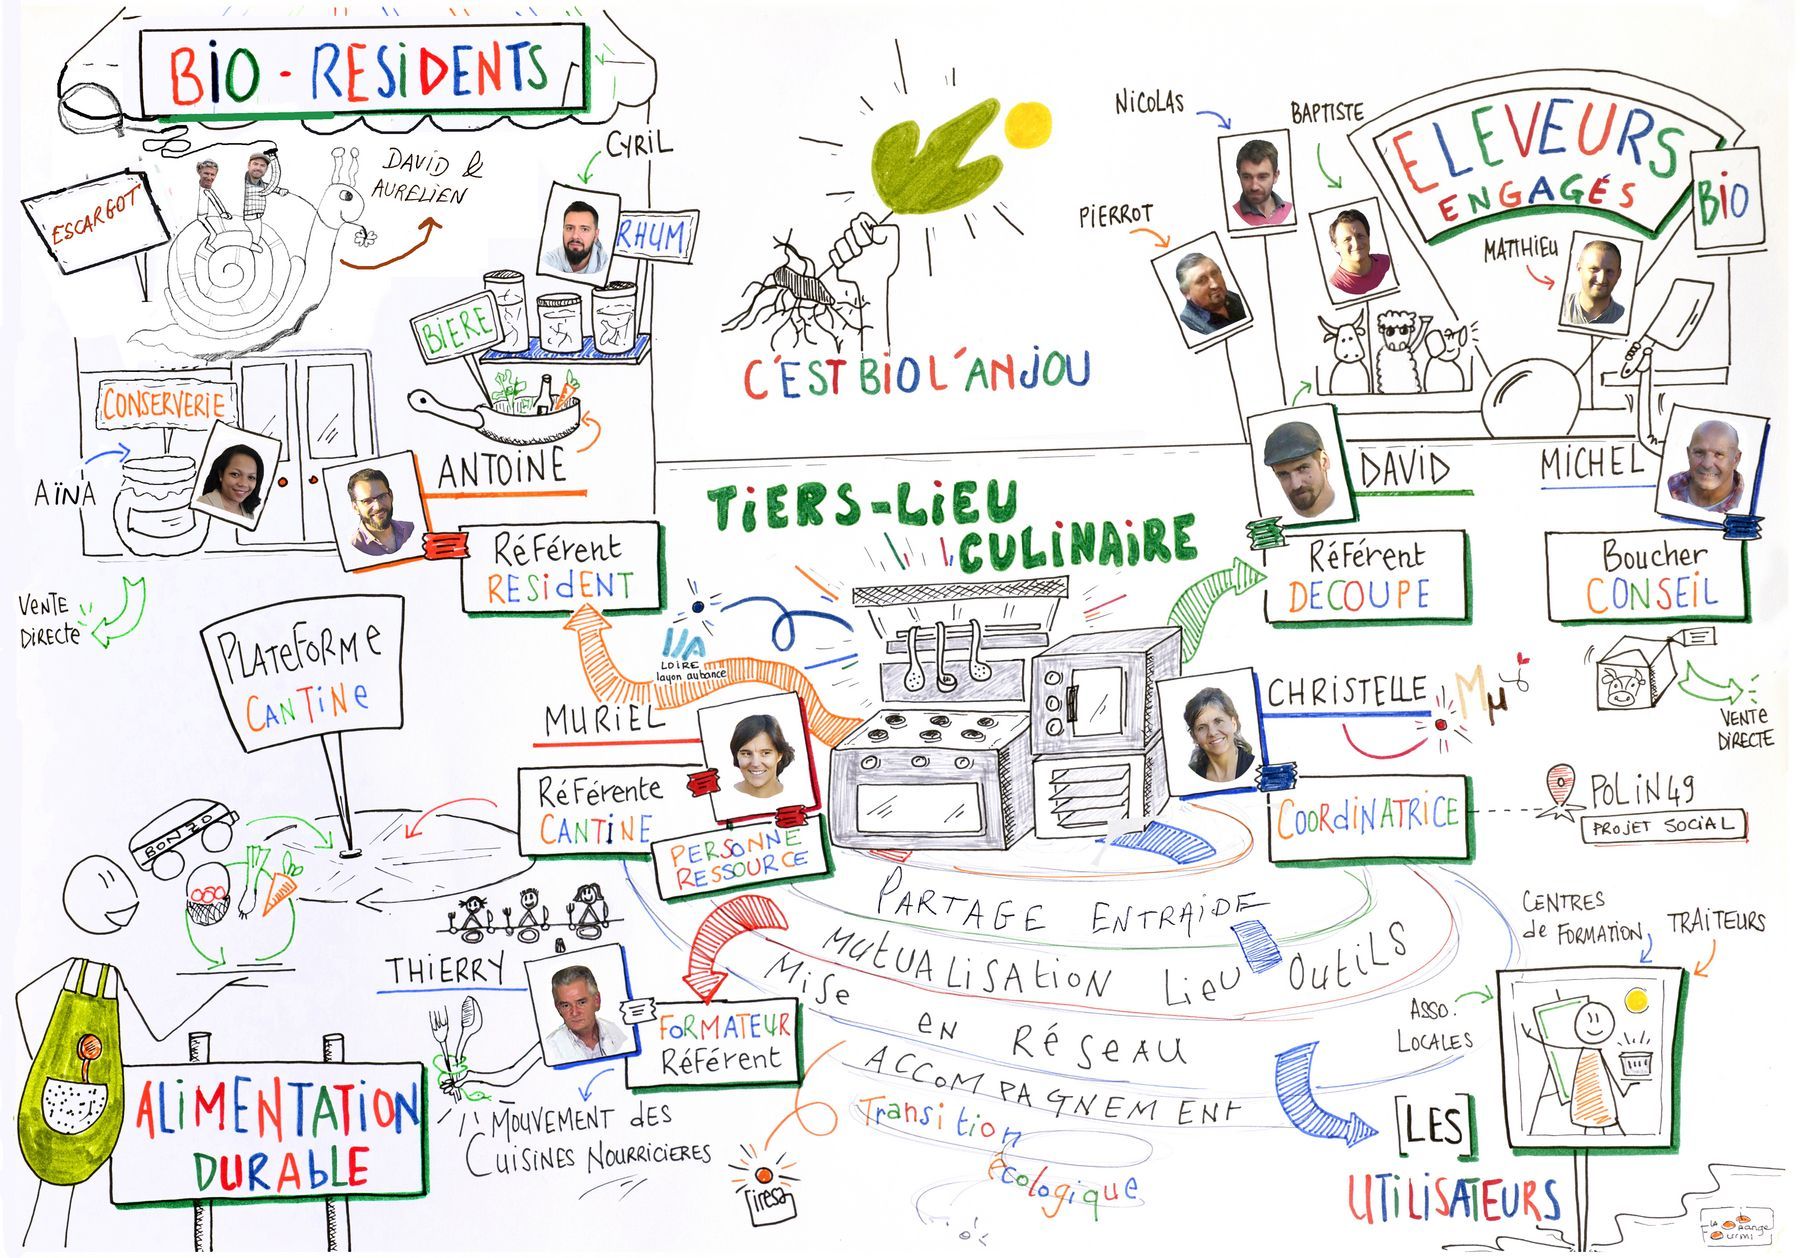 BiO - RESiDENTS
ESCARGOT
DAVID &
AURELIEN
CYRIL
RHUM
BIERE
CONSERVERIE
AÏNA
ANTOINE
RéFérent
RESIDENT
VENTE
DIRECTE
C'EST BIO L'ANJOU
NICOLAS
BAPTISTE
PIERROT
MATTHIEU
ELEVEURS
ENGAGÉS
BiO
DAVID
RéFérent
DECOUPE
MICHEL
Boucher
CONSEIL
VENTE
DIRECTE
TiERS-LiEU
CULiNAiRE
LOIRE
layon aubance
PLATEFORME
CANTINE
MURIEL
RéFérente
CANTINE
PERSONNE
RESSOURCE
CHRISTELLE
Mµ
COORDINATRICE
POLiN49
PROJET SOCIAL
BONZO
THIERRY
FORMATEUR
RéFérent
MOUVEMENT des
CUISINES NOURRICIERES
ALIMENTATION
DURAbLE
PARTAGE ENTRAIDE
MUTUALISATION LiEU OUTiLS
MiSe en RéSeau
ACCOMPAGNEMENT
Transition
écologique
iresa
CENTRES
de FORMATION
TRAITEURS
ASSO.
LOCALES
[LES]
UTILISATEURS